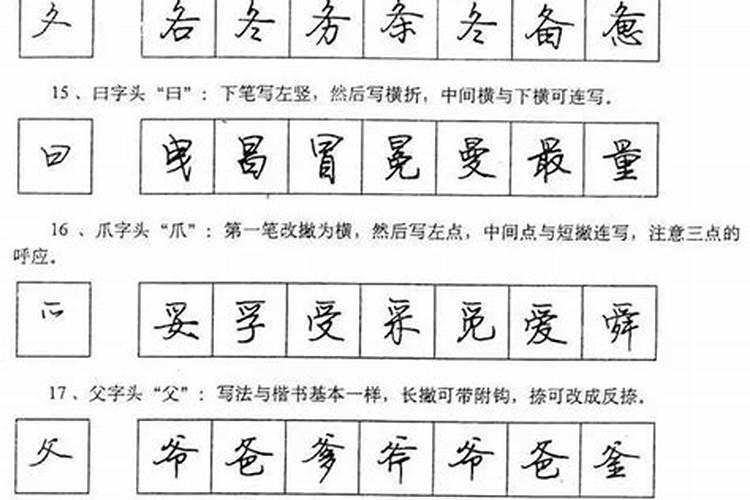 夂 各 冬 务 条 冬 备 惫
15、曰字头“曰”：下笔写左竖，然后写横折，中间横与下横可连写。
曰 曳 昌 冒 冕 曼 最 量
16、爪字头“爪”：第一笔改撇为横，然后写左点，中间点与短撇连写，注意三点的
呼应。
爫 妥 孚 受 采 觅 爱 舜
17、父字头“父”：写法与楷书基本一样，长撇可带附钩，捺可改成反捺。
父 爷 爸 爹 斧 爷 爸 釜